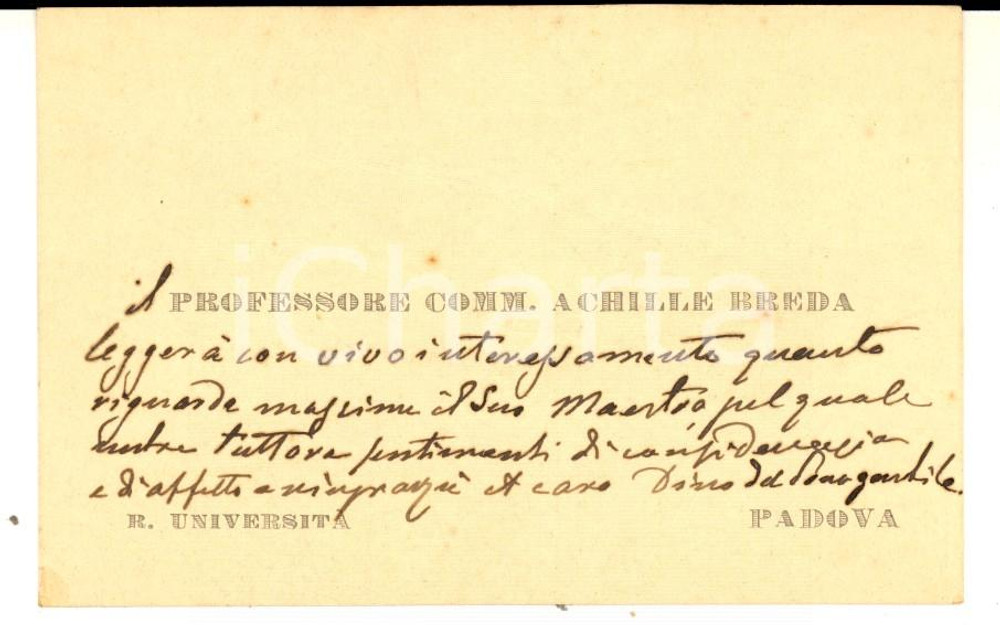 il PROFESSORE COMM. ACHILLE BREDA
leggerà con vivo interessamento quanto
riguarda massime il Suo Maestro pel quale
nutre tuttora sentimenti di
e di affetto e ringrazia il caro Dino del Dono gentile.
R. UNIVERSITÀ PADOVA
iCharta